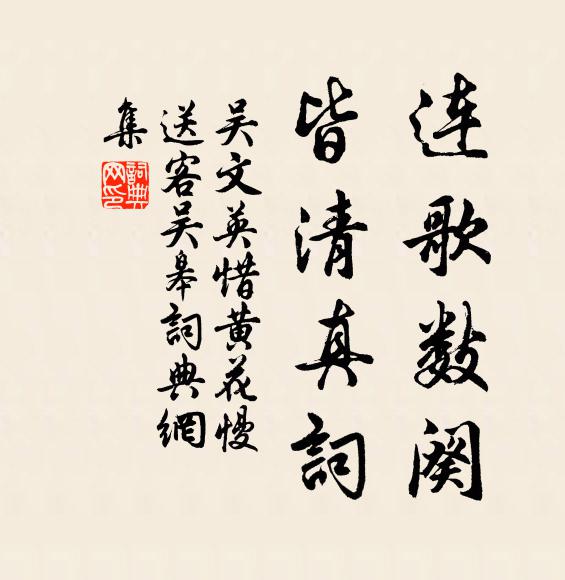 连歌数阕
皆清真詞
吴文英惜黄花慢
送客吴皋詞典網
集
詞典網印